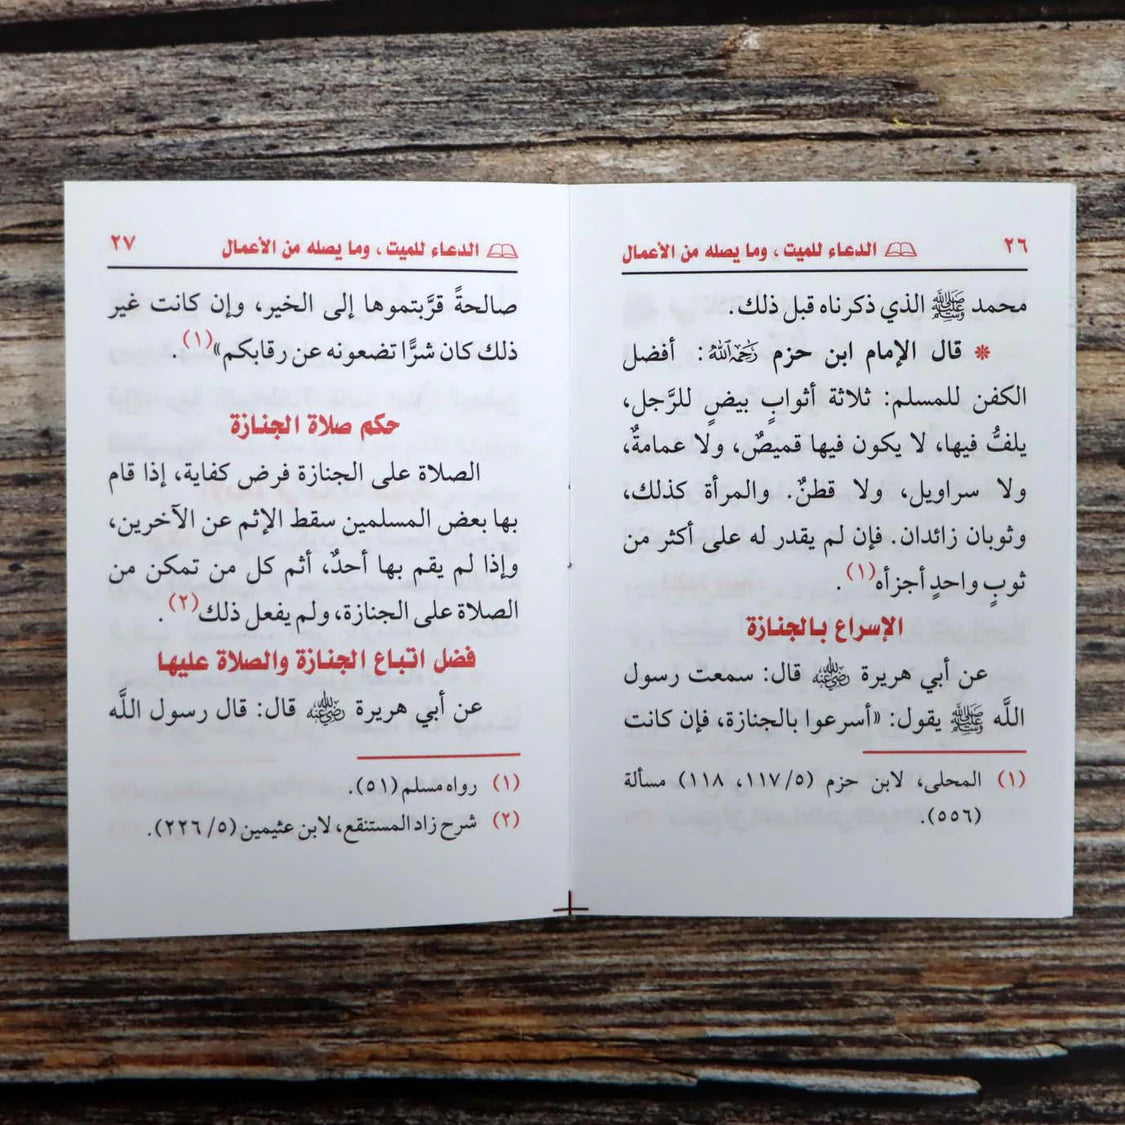 ٢٦ الدعاء للميت ، وما يصله من الأعمال
محمد ﷺ الذي ذكرناه قبل ذلك.
* قال الإمام ابن حزم رَحِمَهُ اللَّهُ: أفضل
الكفن للمسلم: ثلاثة أثوابٍ بيضٍ للرَّجل،
يلفُّ فيها، لا يكون فيها قميصٌ، ولا عمامةٌ،
ولا سراويل، ولا قطنٌ. والمرأة كذلك،
وثوبان زائدان. فإن لم يقدر له على أكثر من
ثوبٍ واحدٍ أجزأه(١).
الإسراع بالجنازة
عن أبي هريرة رضي الله عنه قال: سمعت رسول
اللَّه ﷺ يقول: «أسرعوا بالجنازة، فإن كانت
(١) المحلى، لابن حزم (٥/ ١١٧، ١١٨) مسألة
(٥٥٦).
الدعاء للميت ، وما يصله من الأعمال ٢٧
صالحةً قرَّبتموها إلى الخير، وإن كانت غير
ذلك كان شرًّا تضعونه عن رقابكم»(١).
حكم صلاة الجنازة
الصلاة على الجنازة فرض كفاية، إذا قام
بها بعض المسلمين سقط الإثم عن الآخرين،
وإذا لم يقم بها أحدٌ، أثم كل من تمكن من
الصلاة على الجنازة، ولم يفعل ذلك(٢).
فضل اتباع الجنازة والصلاة عليها
عن أبي هريرة رضي الله عنه قال: قال رسول اللَّه
(١) رواه مسلم (٥١).
(٢) شرح زاد المستنقع، لابن عثيمين (٥/ ٢٢٦).